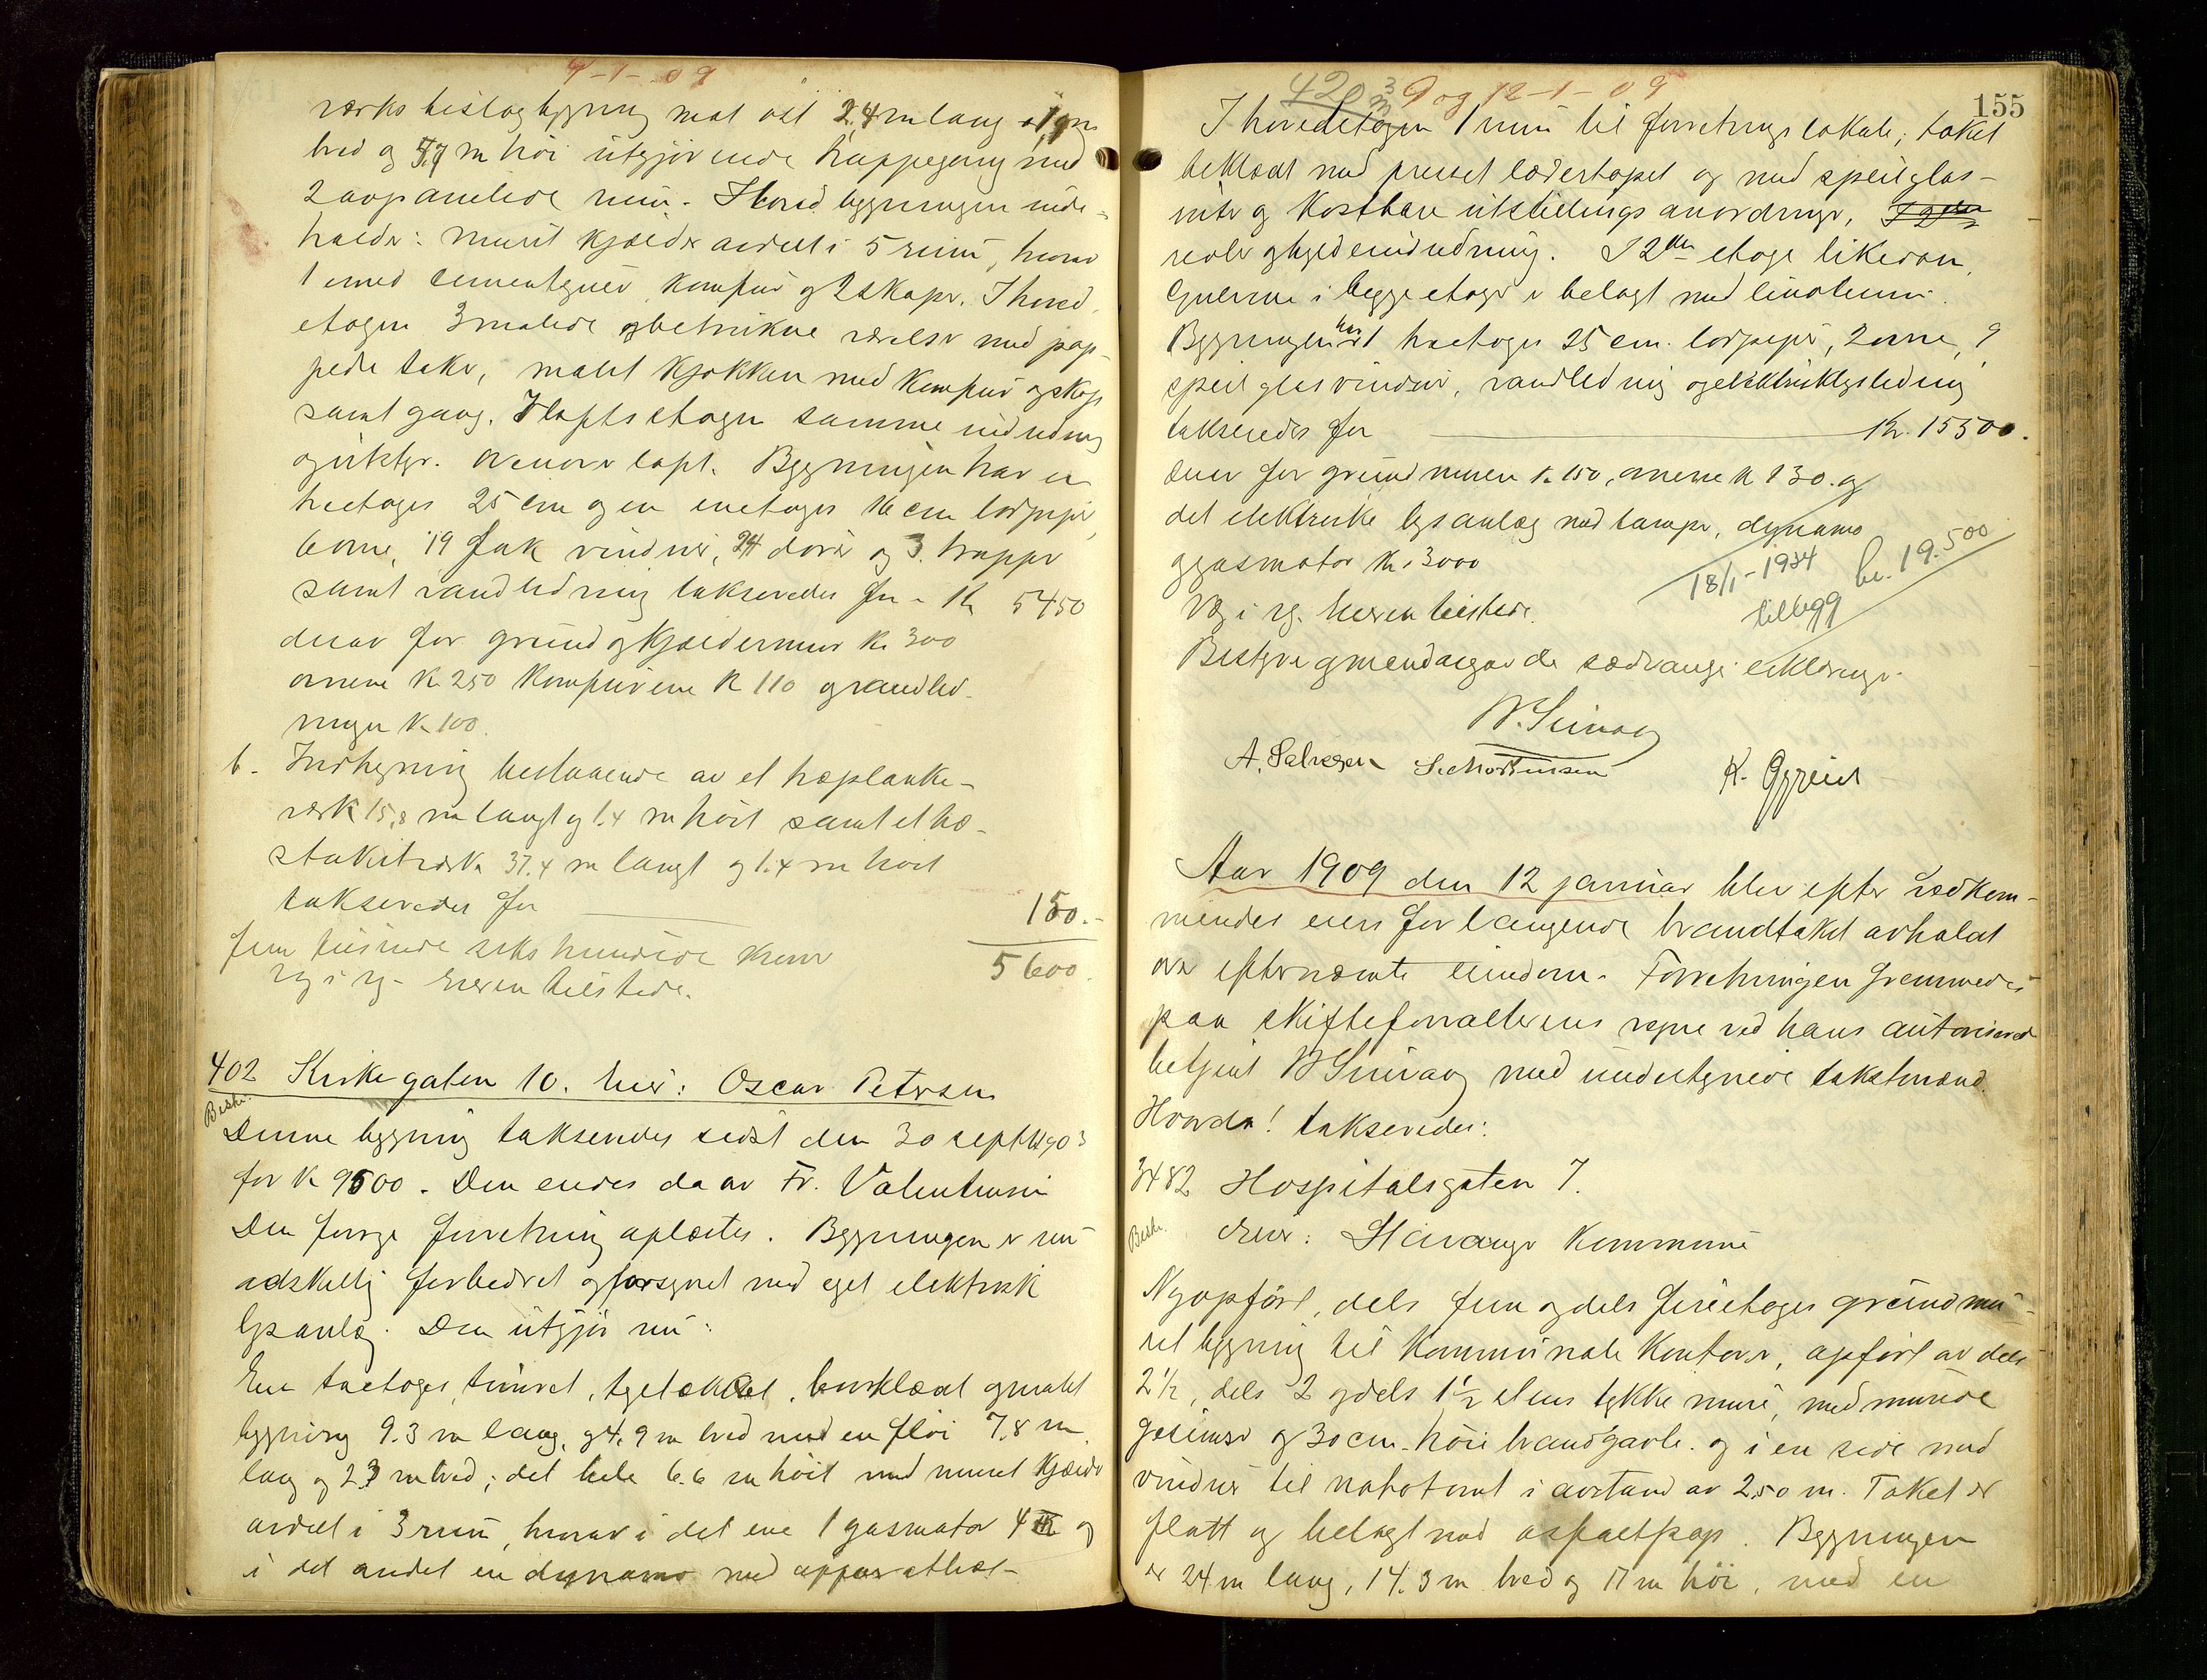 9-1-09
værks bislagbygning mot øst 2.4 m lang
bred og 5.7 m høi utgjørende trappegang med
2 avpanelede rum. Hovedbygningen inde-
holder: muret kjælder avdelt i 5 rum, hvorav
1 med cementgulv, komfur og 2 skape. I hoved-
etagen 3 malede og betrukne værelser med pap-
pede take, malet kjøkken med komfur og skap
samt gang. I loftsetagen samme indredning
og utstyr. Ovenover loft. Bygningen har en
treetages 25 cm og en enetages 16 cm lodpipe,
6 ovne, 19 fak vinduer, 24 dører og 3 trapper
samt vandledning takseredes for - Kr 5450
derav for grund og kjældermur kr 300
ovnene kr 250 komfurene kr 110 og vandled-
ningen kr 100.
b. Indhegning bestaaende av et træplanke-
værk 15,8 m langt og 1.4 m høit samt et træ-
stakitværk 37.4 m langt og 1.4 m høit
takseredes for 150.-
fem tusinde seks hundrede kroner 5600.
Eieren tilstede.
402 Kirkegaten 10. Eier: Oscar Petersen
Beskr.
Denne bygning takseredes sidst den 30 septbr 1903
for kr 9500. Den eiedes da av Fr. Valentinsen
Den forrige forretning oplæstes. Bygningen er nu
adskillig forbedret og forsynet med eget elektrisk
lysanlæg. Den utgjør nu:
En toetages, tømret, tegltækket, bordklædt og malet
bygning 9.3 m lang, og 4.9 m bred med en fløi 7.8 m
lang og 2.3 m bred; det hele 6.6 m høit med muret kjælder
avdelt i 3 rum, hvorav i det ene 1 gasmotor 4 og
i det andet en dynamo med apparattavl-
420 9 og 12-1-09
155
I hovedetagen 1 rum til forretningslokale; taket
beklædt med presset lædertapet og med speilglas-
inter og kostbare utstillingsanordninger,
reoler og hyldeindredning. I 2den etage likesom.
Gulvene i begge etager er belagt med linoleum.
Bygningen har 1 treetages 25 cm. lodpipe, 2 ovne, 9
speilglasvinduer, vandledning og elektrisk lysledning
takseredes for Kr. 15500.
derav for grundmuren kr 150, ovnene kr 130. og
det elektriske lysanlæg med lamper, dynamo
og gasmotor kr. 3000
18/1-1934 kr. 19.500
tillegg
Eieren tilstede.
Bestyrer og mænd avgav de sædvanlige erklæringer.
A. Salvesen S. Mortensen
Aar 1909 den 12 januar blev efter vedkom-
mendes eiers forlangende brandtakst avholdt
over efternævnte eiendom. Forretningen fremmedes
paa skifteforvalterens vegne ved hans autoriserede
betjent med undertegnede takstmænd.
Hvorda! takseredes:
3482 Hospitalsgaten 7.
Beskr. Eier: Stavanger Kommune
Nyopført, dels fem og dels fireetages grundmu-
ret bygning til kommunale kontorer, opført av dels
2½, dels 2 og dels 1½ stens tykke mure, med murede
gesimser og 30 cm. høie brandgavle og i en side med
vinduer til nabotomt i avstand av 2,50 m. Taket er
flatt og belagt med asfaltpap. Bygningen
er 24 m lang, 14.3 m bred og 17 m høi, med en